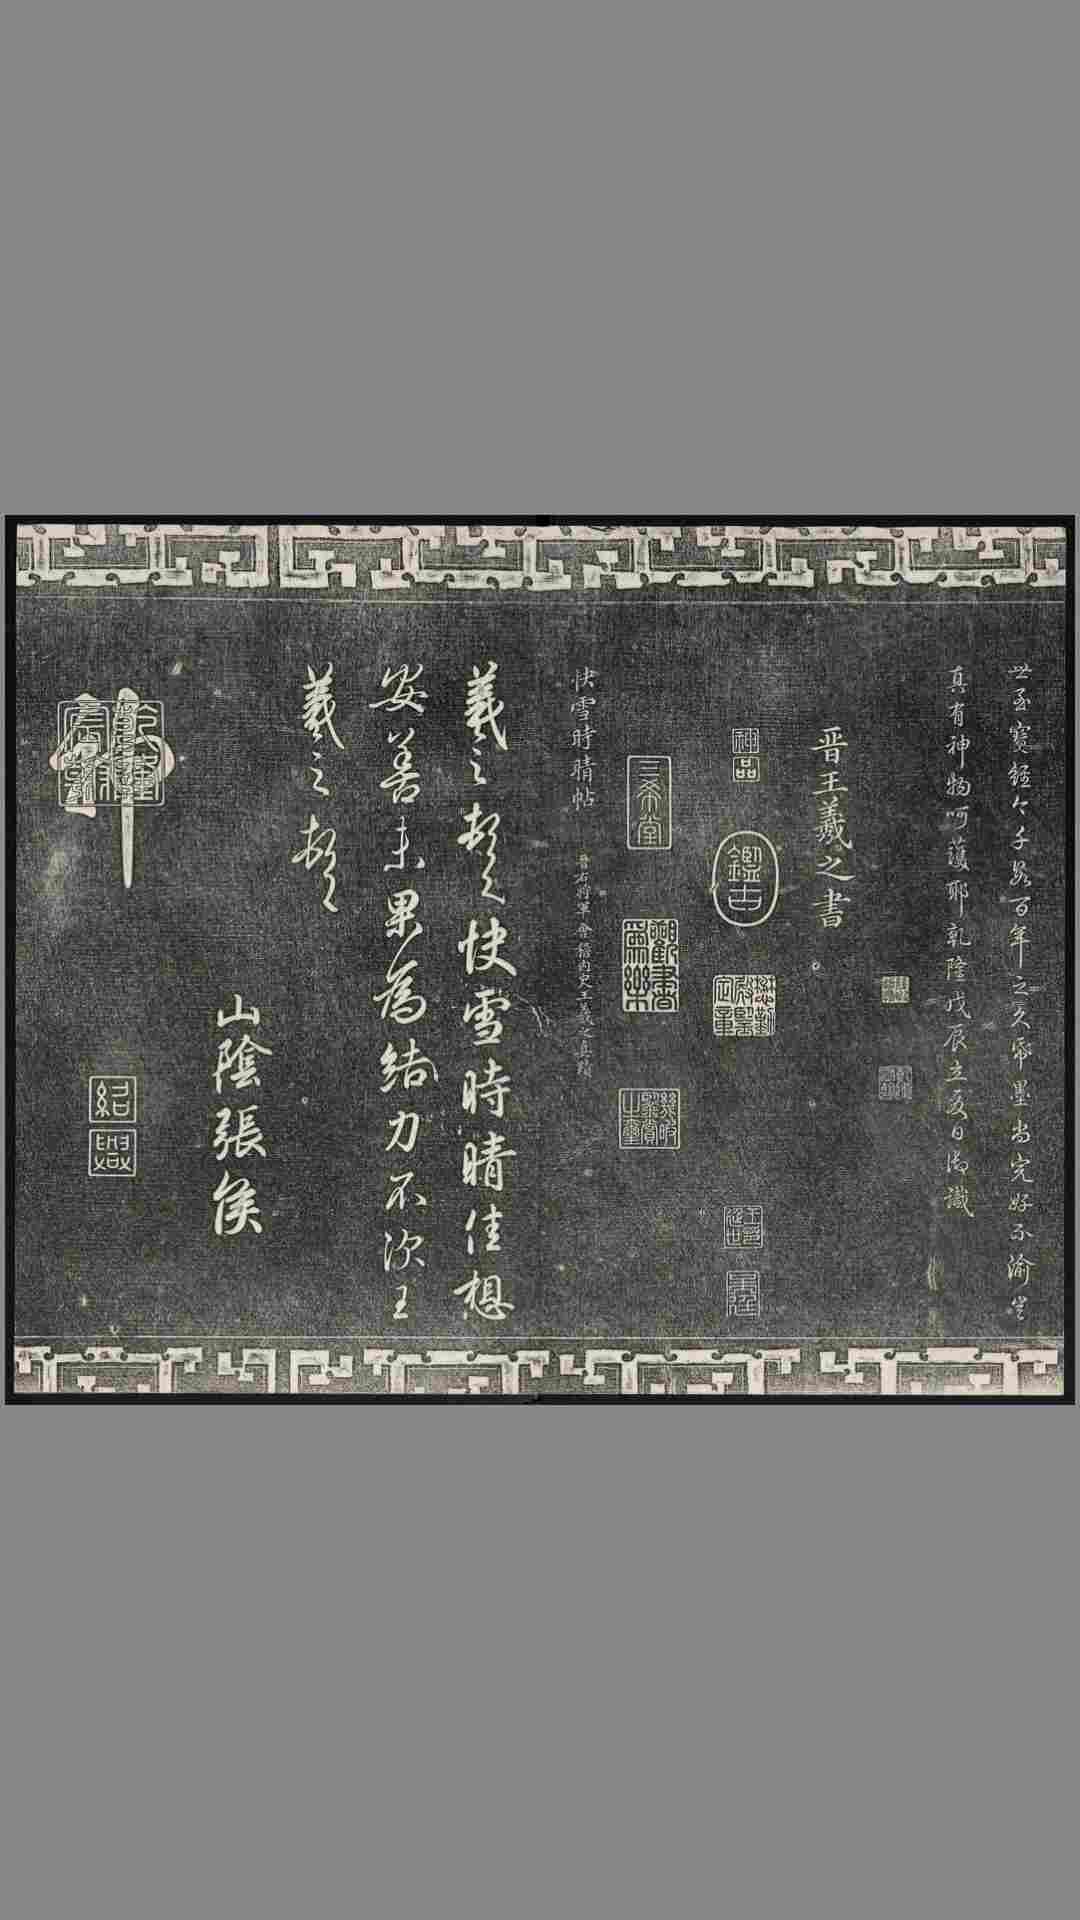 世函寶經今千數百年之久帋墨尚完好不渝豈
真有神物呵護耶乾隆戊辰立夏日御識
晋王羲之書
神品
鑑古
三希堂
觀書為樂
幾暇鑒賞之璽
快雪時晴帖
晉右將軍會稽內史王羲之真蹟
羲之頓首快雪時晴佳想
安善未果為結力不次王
羲之頓首
山陰張侯
乾隆宸翰
紹興